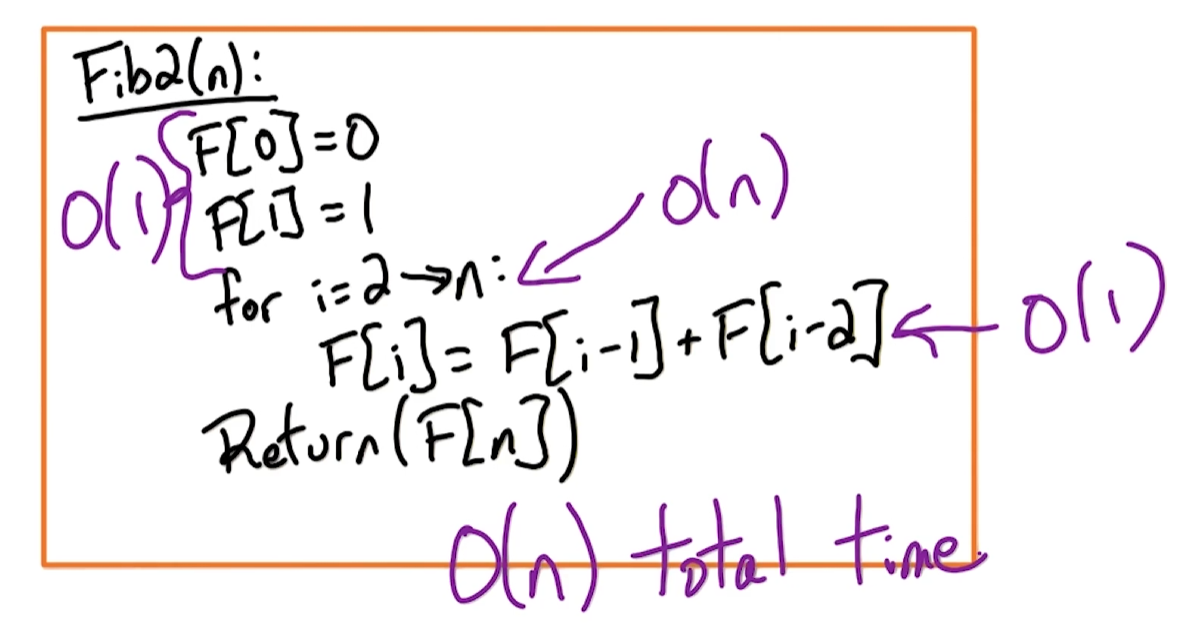 Fib2(n):
F[0]=0
O(1)
F[1]=1
O(n)
for i=2→n:
F[i]= F[i-1]+F[i-2]
O(1)
Return(F[n])
O(n) total time.